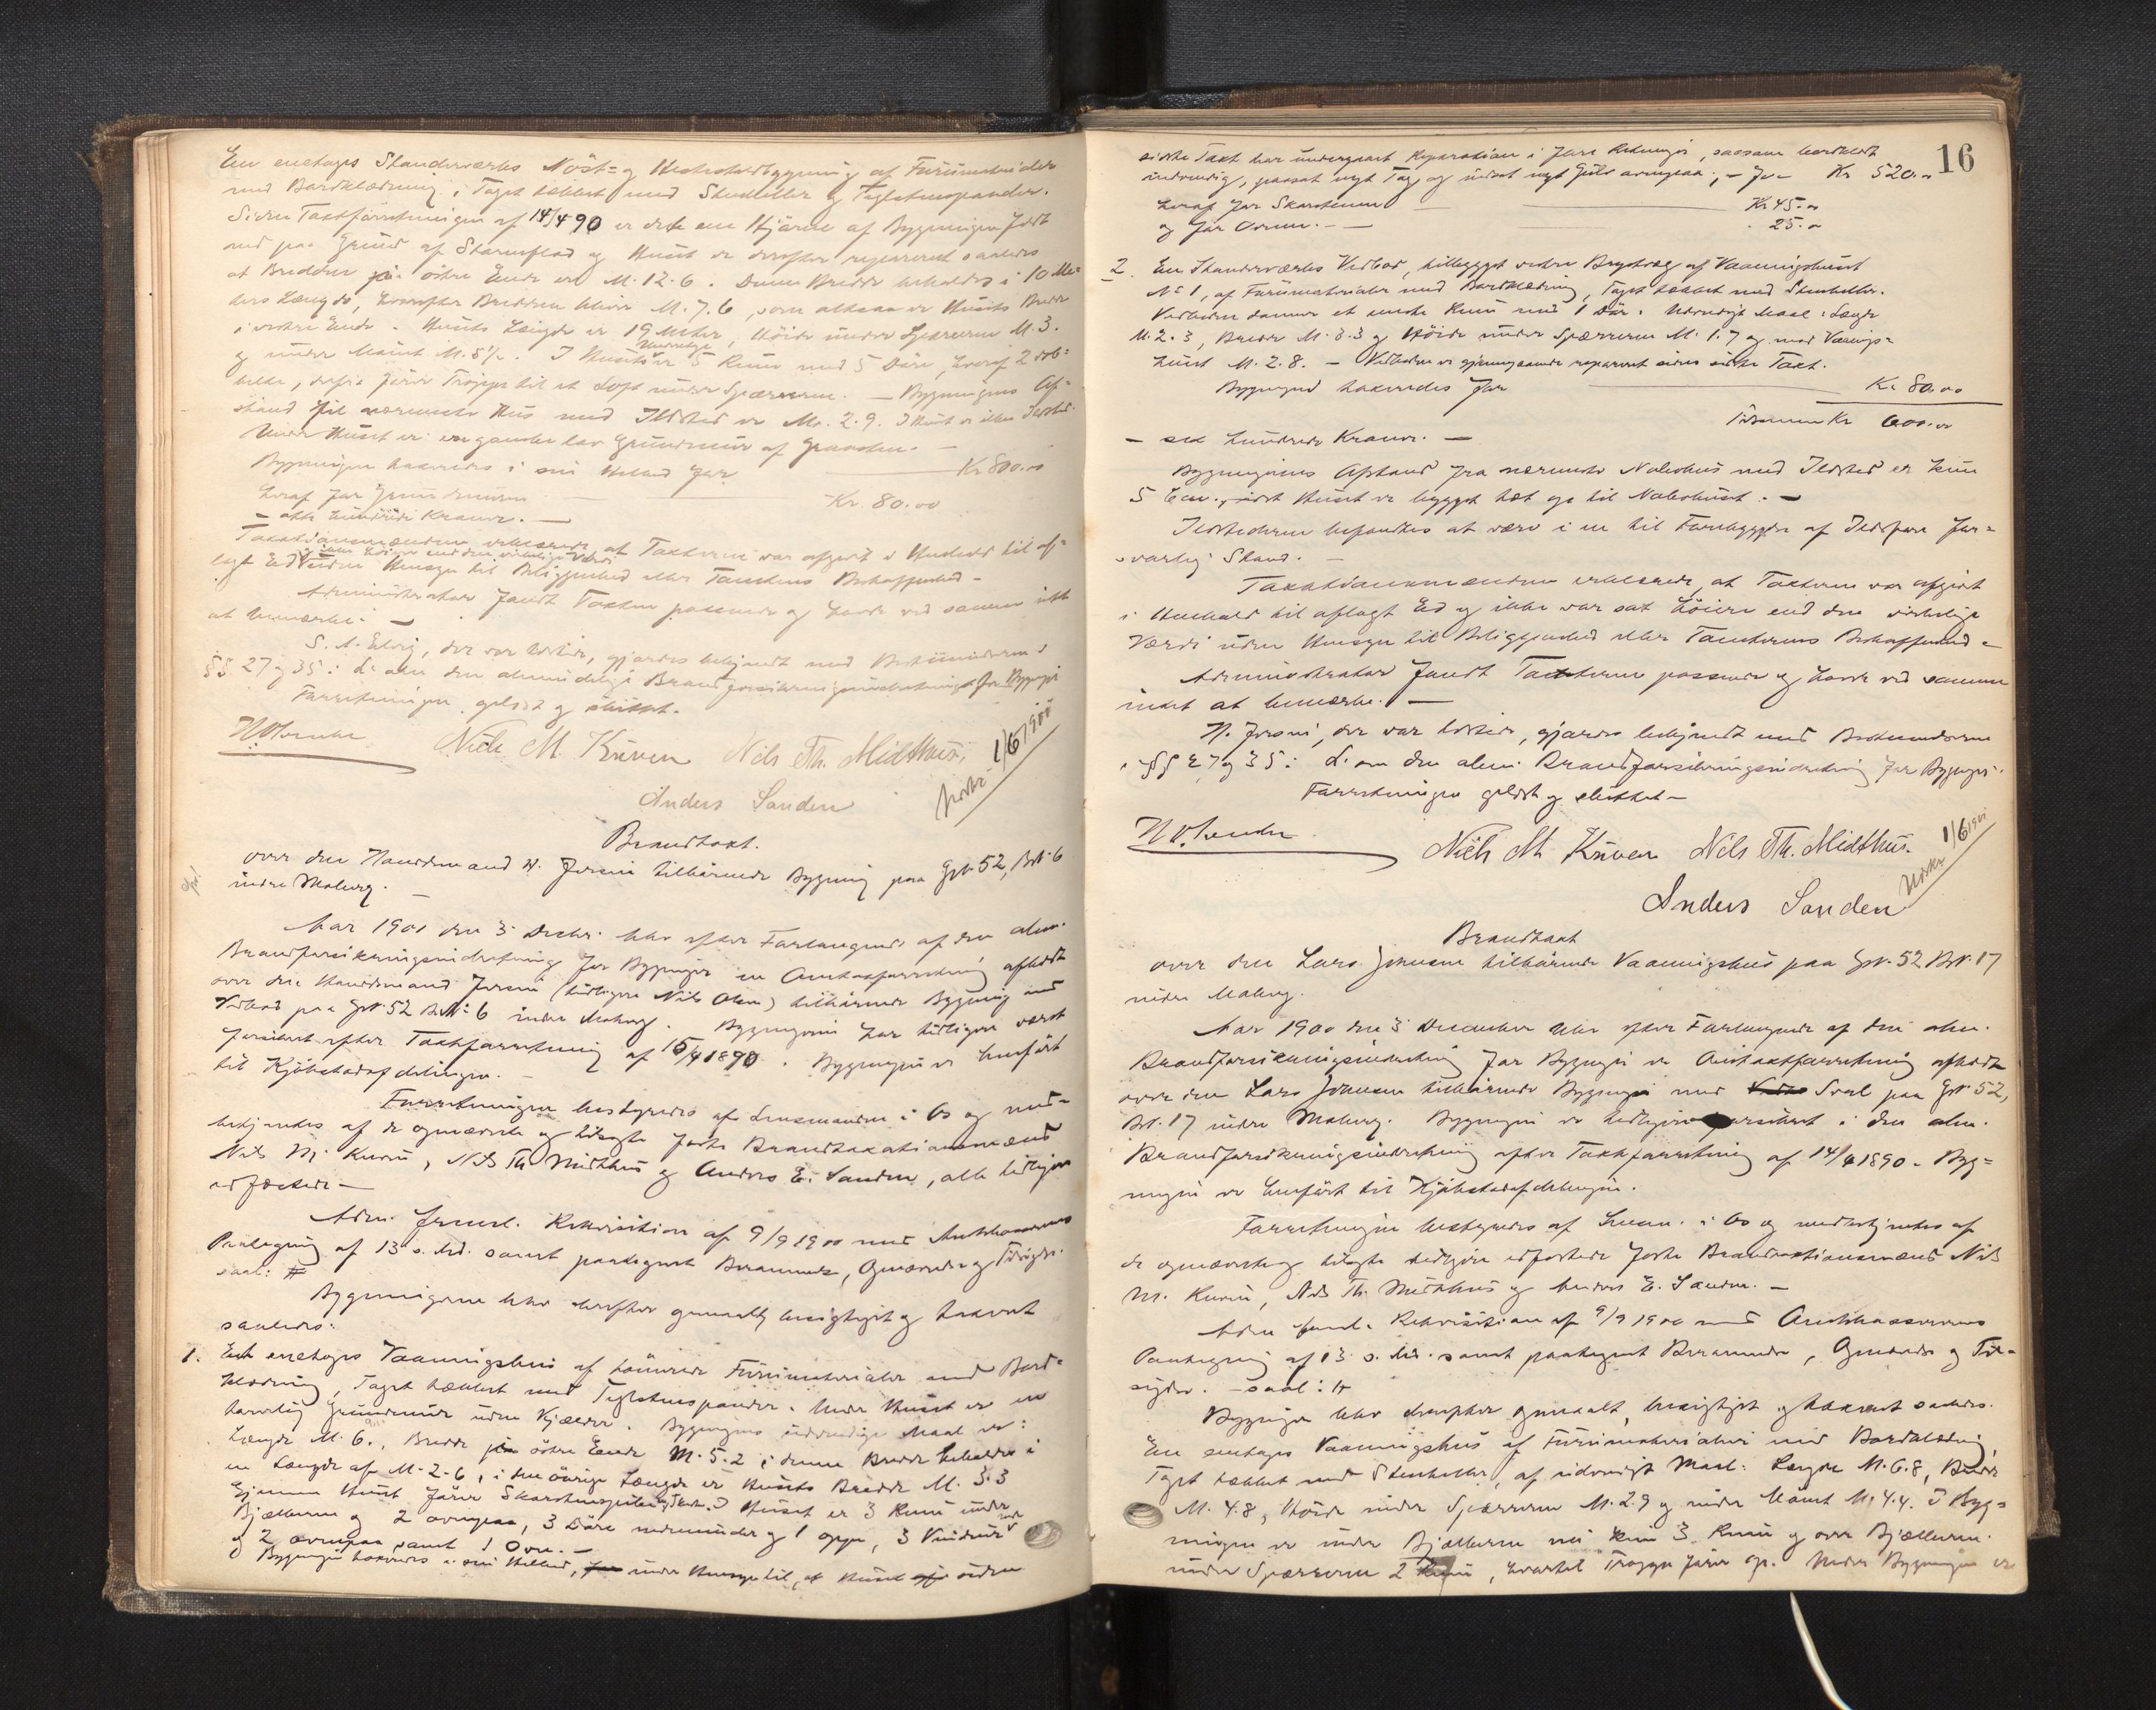 En enetages Standerværks Nöst- og Hestestaldbygning af Furumaterialer
med Bordklædning, Taget tækket med Stenheller og Teglstenspander.
Siden Taxtforretningen af 14/4 90 er den ene Hjörne af Bygningen flydt
ned paa Grund af Stormflod og Huset er derefter repareret saaledes
at Bredden paa östre Ende er M. 12.6. Denne Bredde beholdes i 10 Me-
ters Længde, hvorefter Bredden bliver M. 7.6, som altsaa er Husets Bredde
i vestre Ende. Husets Længde er 19 Meter, Höide under Spærrerne M. 3.
og under Mönet M. 5½. I Husets Underetage er 5 Rum med 5 Döre, hvoraf 2 dob-
belte, derfra förer Trappe til et Loft under Spærrerne. — Bygningens Af-
stand til nærmeste Hus med Ildsted er M. 2.9. I Huset er ikke Ildsted.
Under Huset er en ganske lav Grundmur af Graasten. —
Bygningen taxeredes i sin Helhed for — Kr 800.00
hvoraf for Grundmuren — Kr. 80.00
— otte hundrede Kroner. —
Taxationsmændene erklærede at Taxterne var afgivt i Henhold til af-
lagt Ed og ikke höiere end den virkelige Værdi uden Hensyn til Beliggenhed eller Tomtens Beskaffenhed —
Administrator fandt Taxten passende og havde ved samme intet
at bemærke. —
S. A. , der var tilstede, gjordes bekjendt med Bestemmelserne i
§§ 27 og 35 i L. om den almindelige Brandforsikringsindretning for Bygninger
Forretningen oplæst og sluttet.
Niels M. Kuven Nils Th. Midthus,
Anders Sanden
1/6 1900
Brandtaxt.
over den Handelsmand N. tilhörende Bygning paa Gr. 52, Br. 6
indre Moberg. —
Aar 1900 den 3 Decbr. blev efter Forlangende af den alm.
Brandforsikringsindretning for Bygninger en Omtaxtforretning afholdt
over den Handelsmand (tidligere Nils Olsen) tilhörende Bygning med
Vedbod paa Gr 52 Br. 6 indre Moberg. Bygningen har tidligere været
forsikret efter Taxtforretning af 15/4 1890. Bygningen er henfört
til Kjöbstadafdelingen. —
Forretningen bestyredes af Lensmanden i Os og med-
betjentes af de opnævnte og tilsagte faste Brandtaxationsmænd
Nils M. Kuven, Nils Th. Midthus og Anders E. Sanden, alle tidligere
edfæstede —
Adm. freml. Rekvisition af 9/9 1900 med Amtskassererens
Paategning af 13 s. Md. samt paategnet Berammelse, Opnævnelse og Tilsigelse.
saal: #
Bygningerne blev derefter opmaalt, besigtiget og taxeret
saaledes:
1. Et enetages Vaaningshus af tömrede Furumaterialer med Bord-
klædning, Taget tækket med Teglstenspander. Under Huset er en
Grundmur uden Kjælder. Bygningens udvendige Maal er:
Længde M. 6., Bredde paa östre Ende M. 5.2, denne Bredde beholdes i
en Længde af M. 2.6, i den övrige Længde er Husets Bredde M. 3.3
Gjennem Huset förer Skorstenspibe I Huset er 3 Rum under
Bjælkerne og 2 ovenpaa, 3 Döre nedenunder og 1 oppe, 3 Vinduer nede
og 2 ovenpaa samt 1 Ovn. —
Bygningen taxeredes i sin Helhed, under Hensyn til, at Huset siden
16
sidste Taxt har undergaaet Reparation i flere Retninger, saasom bordklædt
indvendig, paasat nyt Tag og indsat nyt Gulv ovenpaa, — for — Kr 520.00
hvoraf for Skorstenen — Kr 45.00
og for Ovnen. — 25.00
2. En Standerværks Vedbod, tilbygget vestre Brystvæg af Vaaningshuset
No 1, af Furumaterialer med Bordklædning, Taget tækket med Stenheller.
Vedboden danner et eneste Rum med 1 Dör. Udvendigt Maal: Længde
M. 2.3, Bredde M. 3.3 og Höide under Spærrerne M. 1.7 og mod Vaanings-
huset M. 2.8. — Vedboden er gjennemgaaende repareret siden sidste Taxt.
Bygningen taxeredes for — Kr 80.00
Tilsammen Kr 600.00
— sex hundrede Kroner. —
Bygningens Afstand fra nærmeste Nabohus med Ildsted er kun
5 Cm., idet Huset er bygget tæt op til Nabohuset. —
Ildstederne befandtes at være i en til Forebyggelse af Ildsfare for-
svarlig Stand. —
Taxationsmændene erklærede, at Taxterne var afgivt
i Henhold til aflagt Ed og ikke var sat höiere end den virkelige
Værdi uden Hensyn til Beliggenhed eller Tomternes Beskaffenhed —
Administrator fandt Taxterne passende og havde ved samme
intet at bemærke. —
N. , der var tilstede, gjordes bekjendt med Bestemmelserne
i §§ 27 og 35 i L. om den alm. Brandforsikringsindretning for Bygninger.
Forretningen oplæst og sluttet —
Niels M. Kuven Nils Th. Midthus.
Anders Sanden
1/6 1901
Brandtaxt
over den Lars Johnsen tilhörende Vaaningshus paa Gr. 52 Br. 17
indre Moberg.
Aar 1900 den 3 December blev efter Forlangende af den alm.
Brandforsikringsindretning for Bygninger en Omtaxtforretning afholdt
over den Lars Johnsen tilhörende Bygning med Sval paa Gr. 52,
Br. 17 indre Moberg. Bygningen er tidligere forsikret i den alm.
Brandforsikringsindretning efter Taxtforretning af 14/4 1890. Byg-
ningen er henfört til Kjöbstadafdelingen.
Forretningen bestyredes af Lensm. i Os og medbetjentes af
de opnævnte og tilsagte tidligere edfæstede faste Brandtaxtionsmænd Nils
M. Kuven, Nils Th. Midthus og Anders E. Sanden. —
Adm freml. Rekvisition af 9/9 1900 med Amtskassererens
Paategning af 13 s. Md. samt paategnet Berammelse, Opnævnelse og Til-
sigelse. — saal: #
Bygningen blev derefter opmaalt, besigtiget og taxeret saaledes.
En enetages Vaaningshus af Furumaterialer med Bordklædning,
Taget tækket med Stenheller, af udvendigt Maal: Længde M. 6.8, Bredde
M. 4.8, Höide under Spærrerne M. 2.9 og under Mönet M. 4.4. I Byg-
ningen er under Bjælkerne nu kun 3 Rum og over Bjælkerne
under Spærrerne 2 Rum, hvortil Trappe förer op. Under Bygningen er